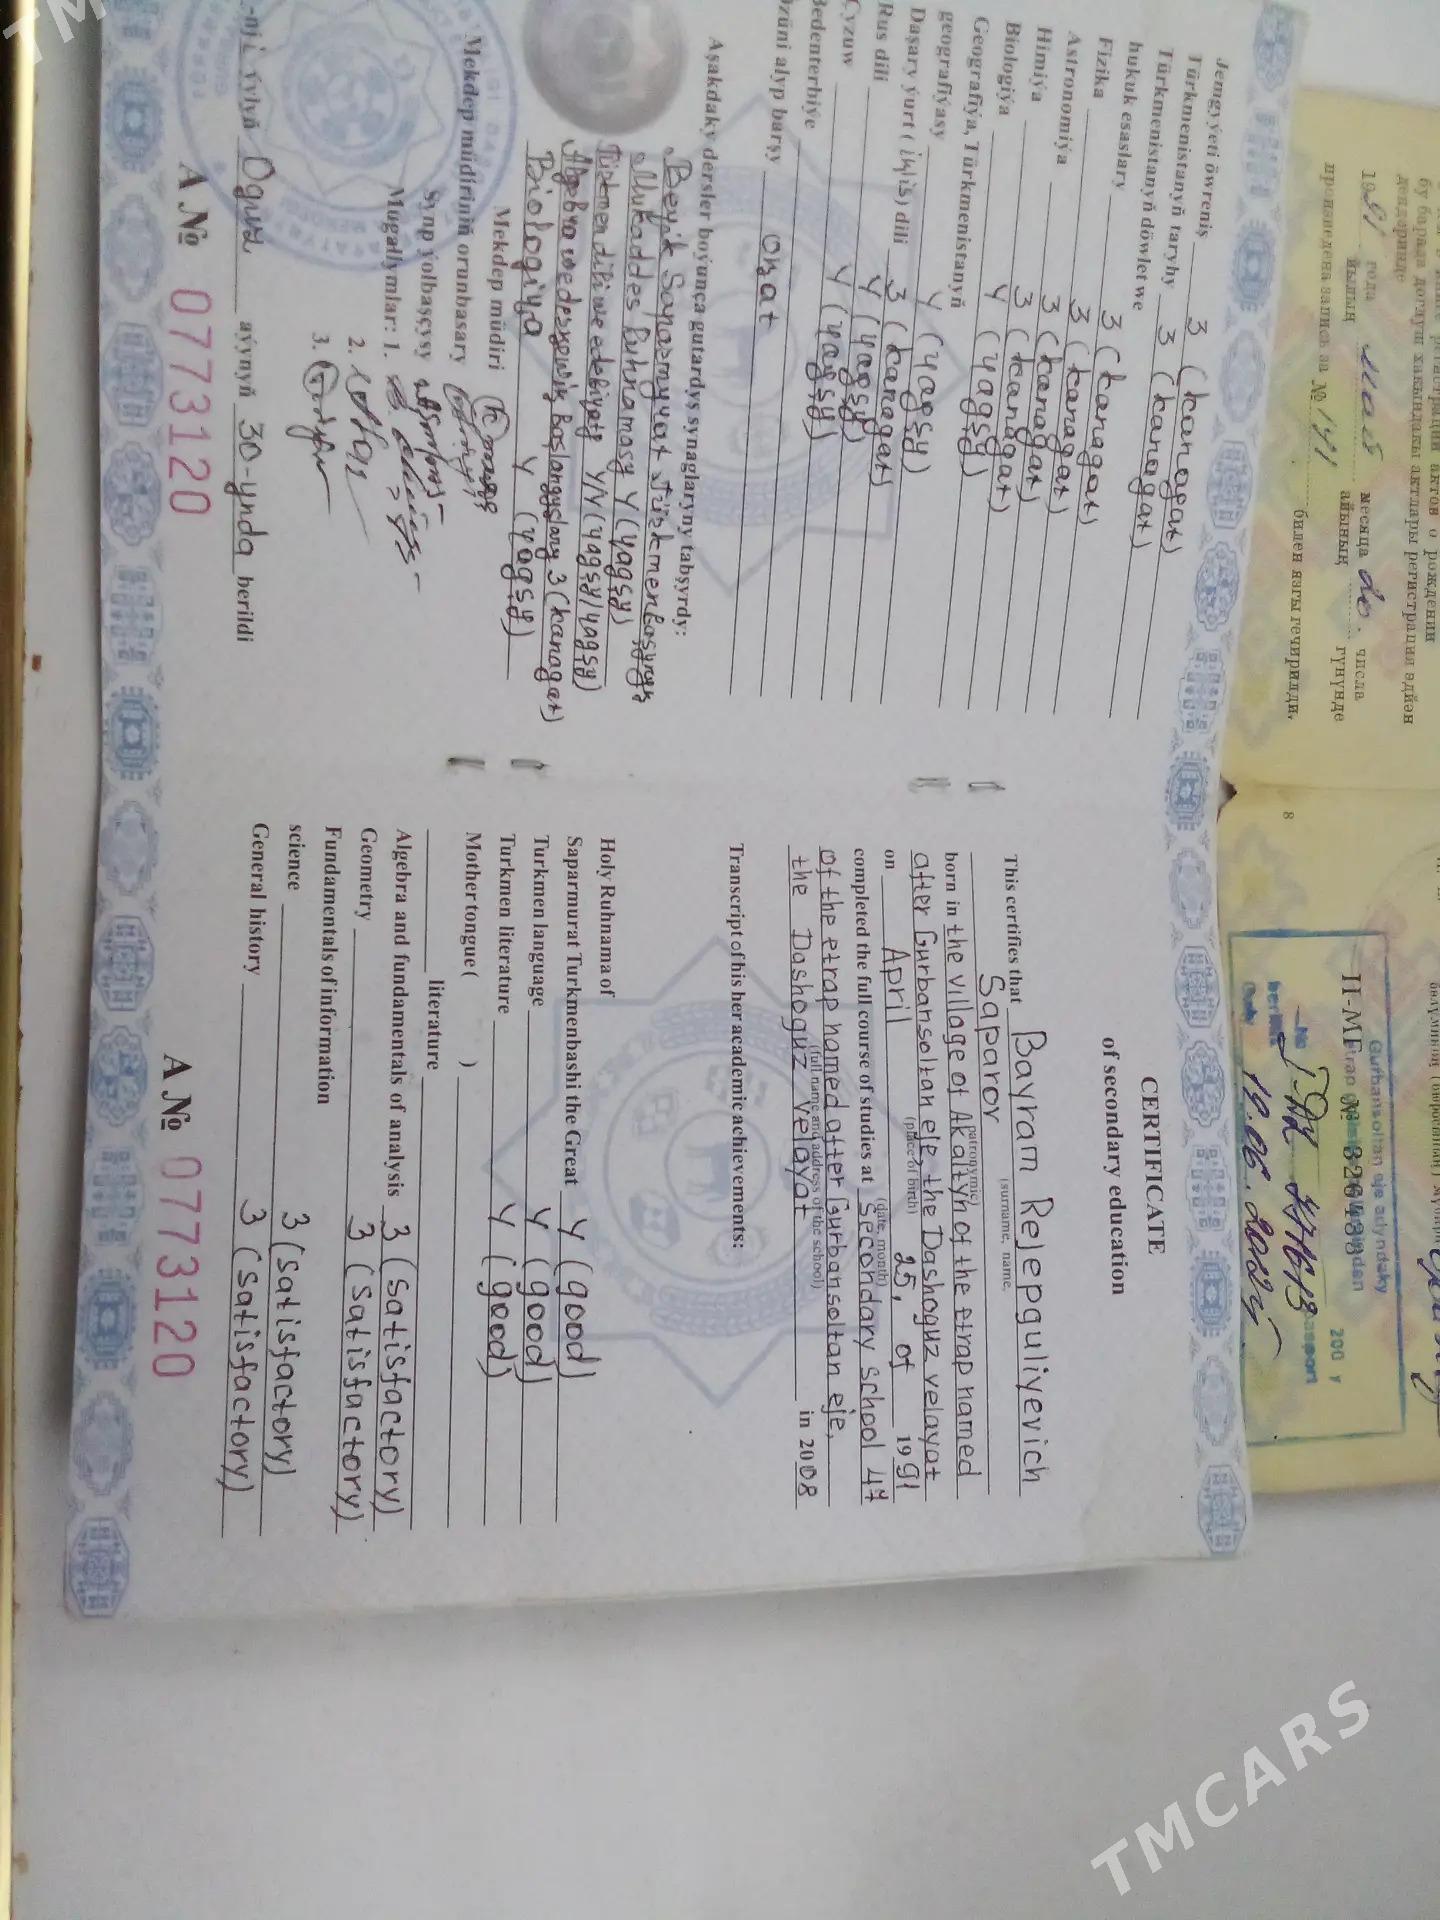 Jemgyýeti öwreniş 3 (kanagat)
Türkmenistanyň taryhy 3 (kanagat)
Türkmenistanyň döwlet we
hukuk esaslary 3 (kanagat)
Fizika 3 (kanagat)
Astronomiýa 3 (kanagat)
Himiýa 3 (kanagat)
Biologiýa 4 (ýagşy)
Geografiýa, Türkmenistanyň
geografiýasy 4 (ýagşy)
Daşary ýurt (iňlis) dili 3 (kanagat)
Rus dili 4 (ýagşy)
Çyzuw 4 (ýagşy)
Bedenterbiýe
Özüni alyp barşy oňat
Aşakdaky dersler boýunça gutardyş synaglaryny tabşyrdy:
Beýik Saparmyrat Türkmenbaşynyň
Mukaddes Ruhnamasy 4 (ýagşy)
Türkmen dili we edebiýaty 4/4 (ýagşy/ýagşy)
Algebra we derňewiň başlangyçlary 3 (kanagat)
Biologiýa 4 (ýagşy)
Mekdep müdiri
Mekdep müdiriniň orunbasary
Synp ýolbaşçysy
Mugallymlar: 1.
2.
3.
-nji ýylyň Oguz aýynyň 30-ynda berildi
A № 0773120
CERTIFICATE
of secondary education
This certifies that Bayram Rejepguliyevich
(surname, name,
Saparov
patronymic)
born in the village of Akaltyn of the etrap named
after Gurbansoltan eje, the Dashoguz velayat
(place of birth)
on April 25, of 1991
(date, month)
completed the full course of studies at secondary school 47
of the etrap named after Gurbansoltan eje,
(full name and address of the school)
the Dashoguz velayat in 2008
Transcript of his her academic achievements:
Holy Ruhnama of
Saparmurat Turkmenbashi the Great 4 (good)
Turkmen language 4 (good)
Turkmen literature 4 (good)
Mother tongue ( )
literature
Algebra and fundamentals of analysis 3 (satisfactory)
Geometry 3 (satisfactory)
Fundamentals of information
science 3 (satisfactory)
General history 3 (satisfactory)
A № 0773120
регистрации актов о рождении
бу барада догулуш хакындакы актлары регистрация эдйән
дептеринде
1991 года мая месяца 20. числа
йылың айының гүнүнде
произведена запись за № 141
билен язгы гечирилди.
8
Gurbansoltan eje adyndaky
II-МГ № 326188
200 ý
berildi
19.06.2002
TMCARS